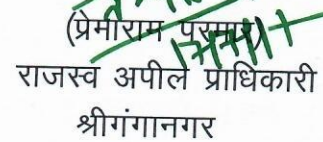 (प्रेमाराम परमार)
राजस्व अपील प्राधिकारी
श्रीगंगानगर